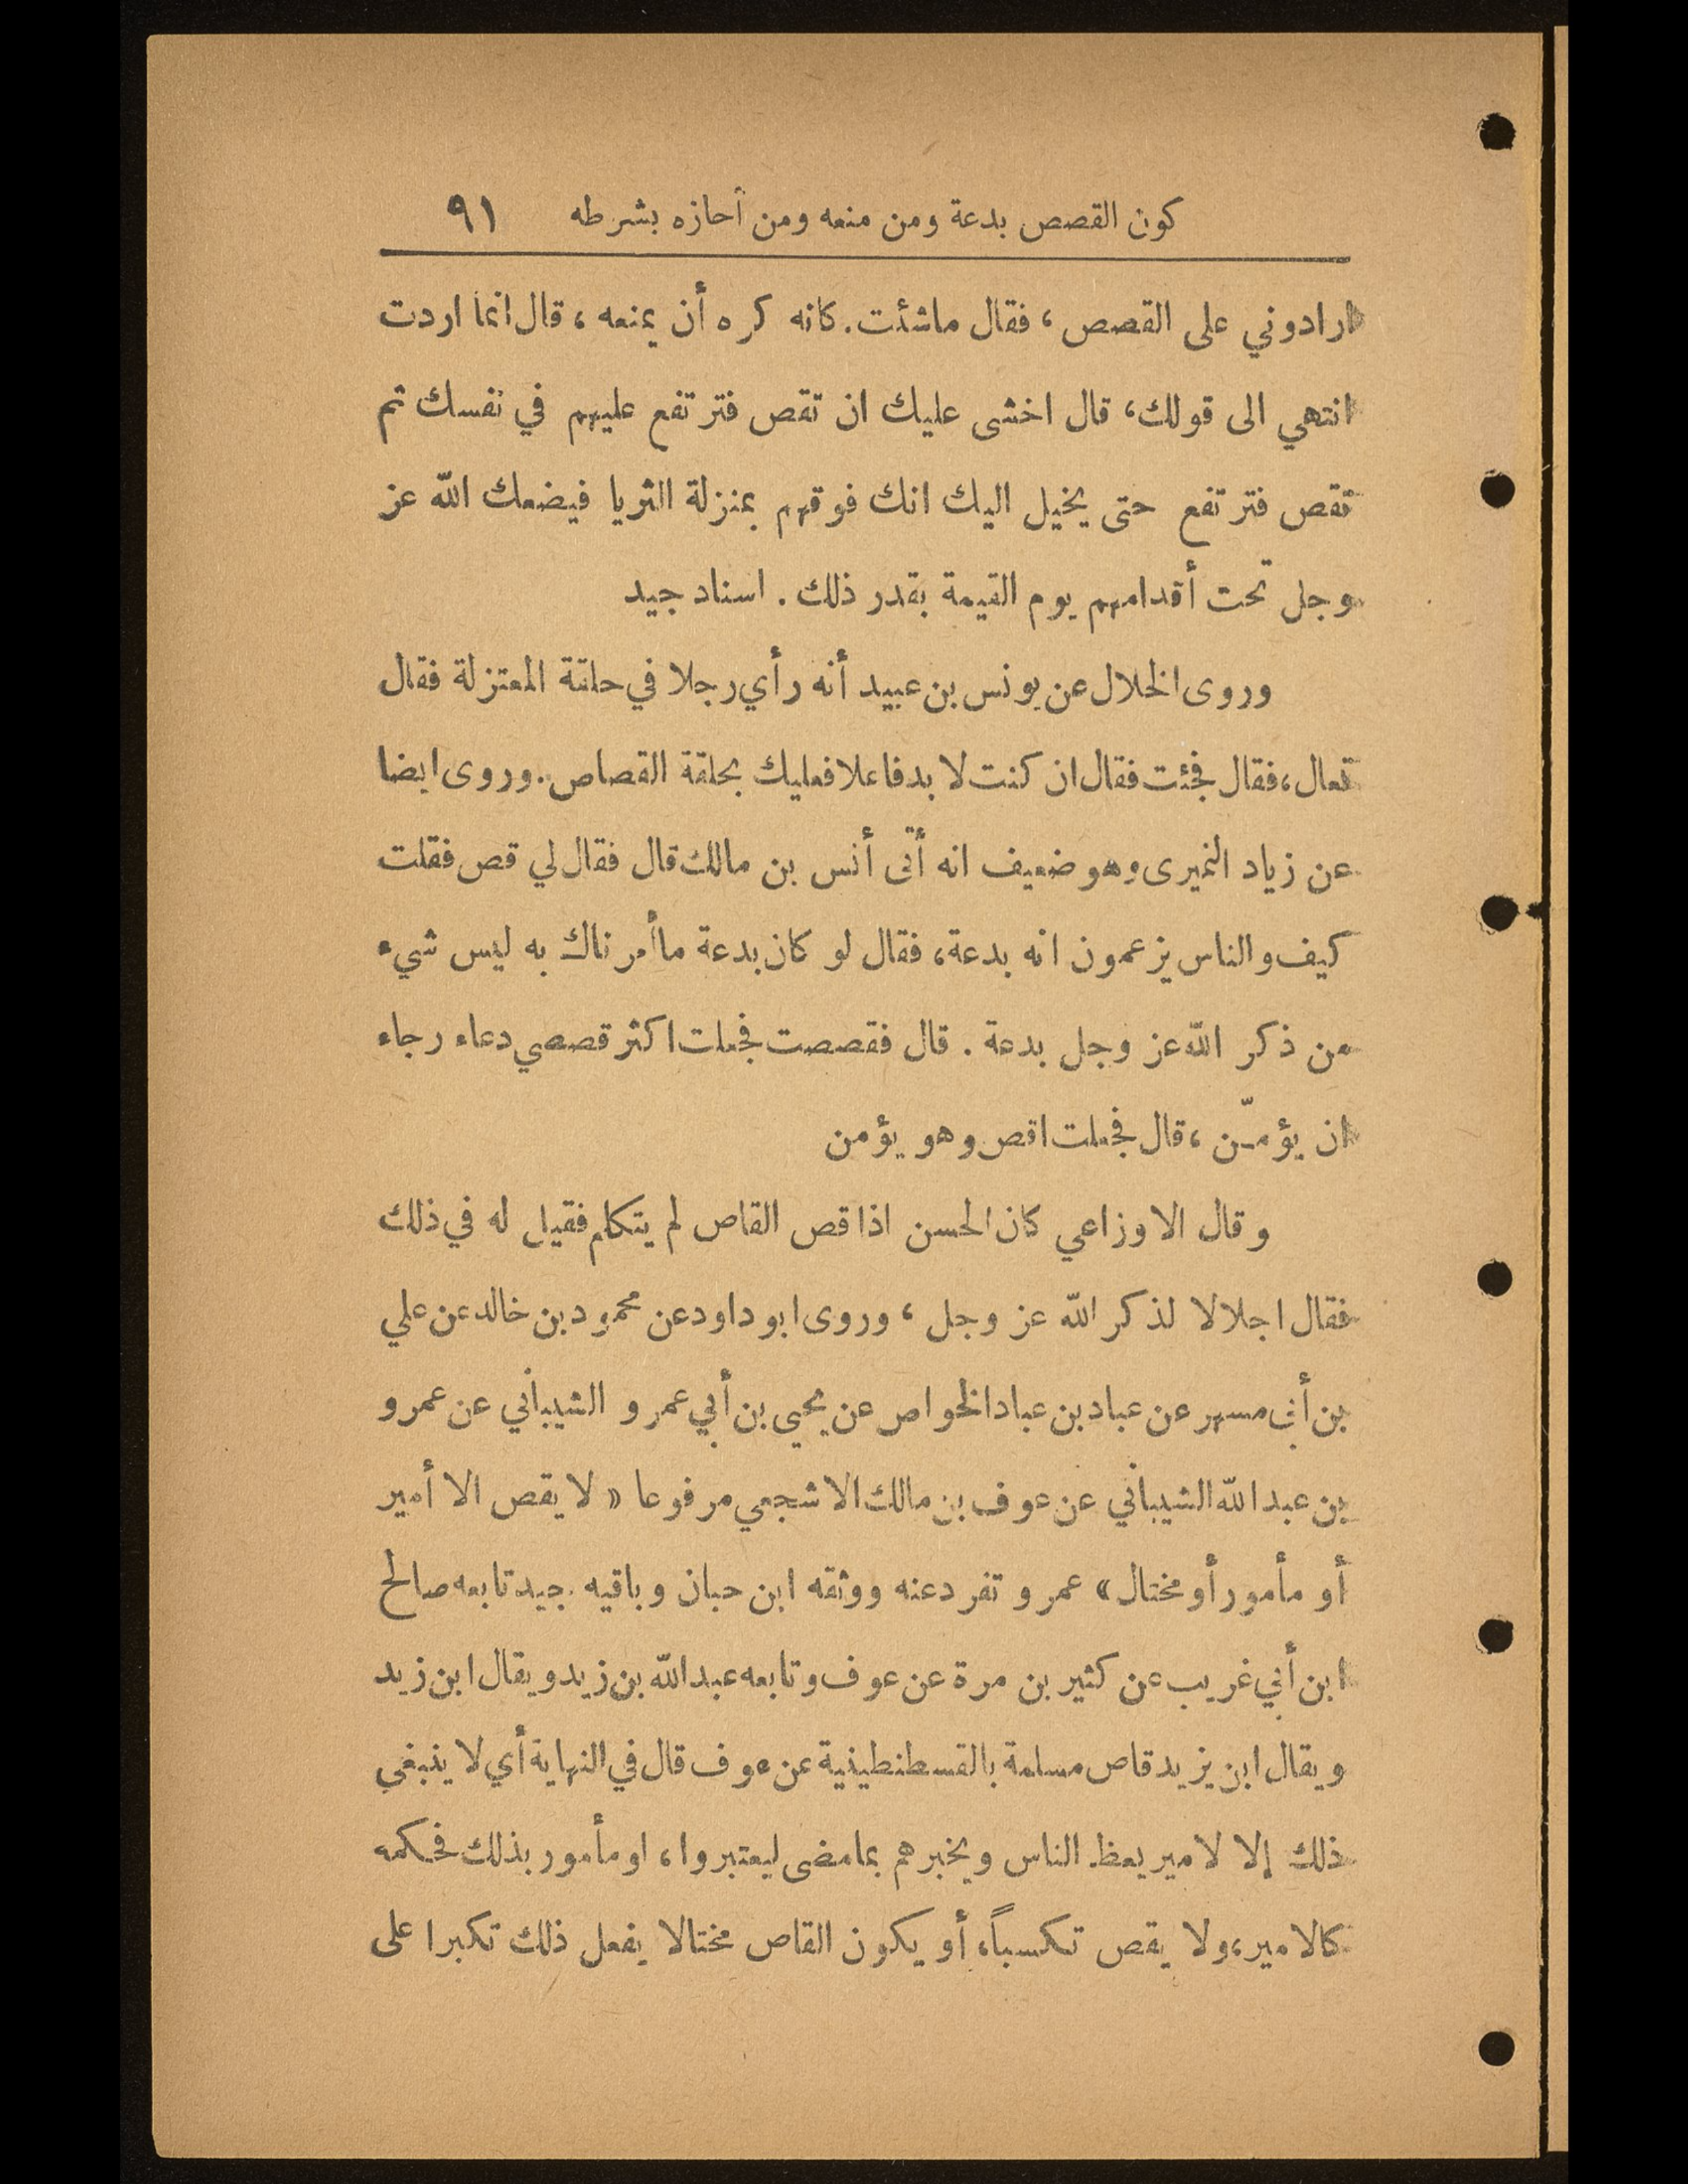 كون القصص بدعة ومن منعه ومن أحازه بشرطه ٩١
ارادوني على القصص، فقال ماشئت. كانه كره أن يمنعه، قال انما اردت
انتهي الى قولك، قال اخشى عليك ان تقص فترتفع عليهم في نفسك ثم
تقص فترتفع حتى يخيل اليك انك فوقهم بمنزلة الثريا فيضعك الله عز
وجل تحت أقدامهم يوم القيمة بقدر ذلك. اسناد جيد
وروى الخلال عن يونس بن عبيد أنه رأي رجلا في حلقة المعتزلة فقال
تعال، فقال فجئت فقال ان كنت لا بد فاعلا فعليك بحلقة القصاص. وروى ايضا
عن زياد النميرى وهو ضعيف انه أتى أنس بن مالك قال فقال لي قص فقلت
كيف والناس يزعمون انه بدعة، فقال لو كان بدعة ماأمرناك به ليس شيء
من ذكر الله عز وجل بدعة. قال فقصصت فجعلت اكثر قصصي دعاء رجاء
ان يؤمّن، قال فجعلت اقص وهو يؤمن
وقال الاوزاعي كان الحسن اذا قص القاص لم يتكلم فقيل له في ذلك
فقال اجلالا لذكر الله عز وجل، وروى ابو داود عن محمود بن خالد عن علي
بن أبي مسهر عن عباد بن عباد الخواص عن يحيى بن أبي عمرو الشيباني عن عمرو
بن عبد الله الشيباني عن عوف بن مالك الاشجعي مرفوعا « لا يقص الا أمير
أو مأمور أو مختال » عمرو تفرد عنه ووثقه ابن حبان وباقيه جيد تابعه صالح
ابن أبي غريب عن كثير بن مرة عن عوف وتابعه عبد الله بن زيد ويقال ابن زيد
ويقال ابن يزيد قاص مسلمة بالقسطنطينية عن عوف قال في النهاية أي لا ينبغي
ذلك إلا لامير يعظ الناس ويخبرهم بمامضى ليعتبروا، او مأمور بذلك فحكمه
كالامير، ولا يقص تكسباً، أو يكون القاص مختالا يفعل ذلك تكبرا على